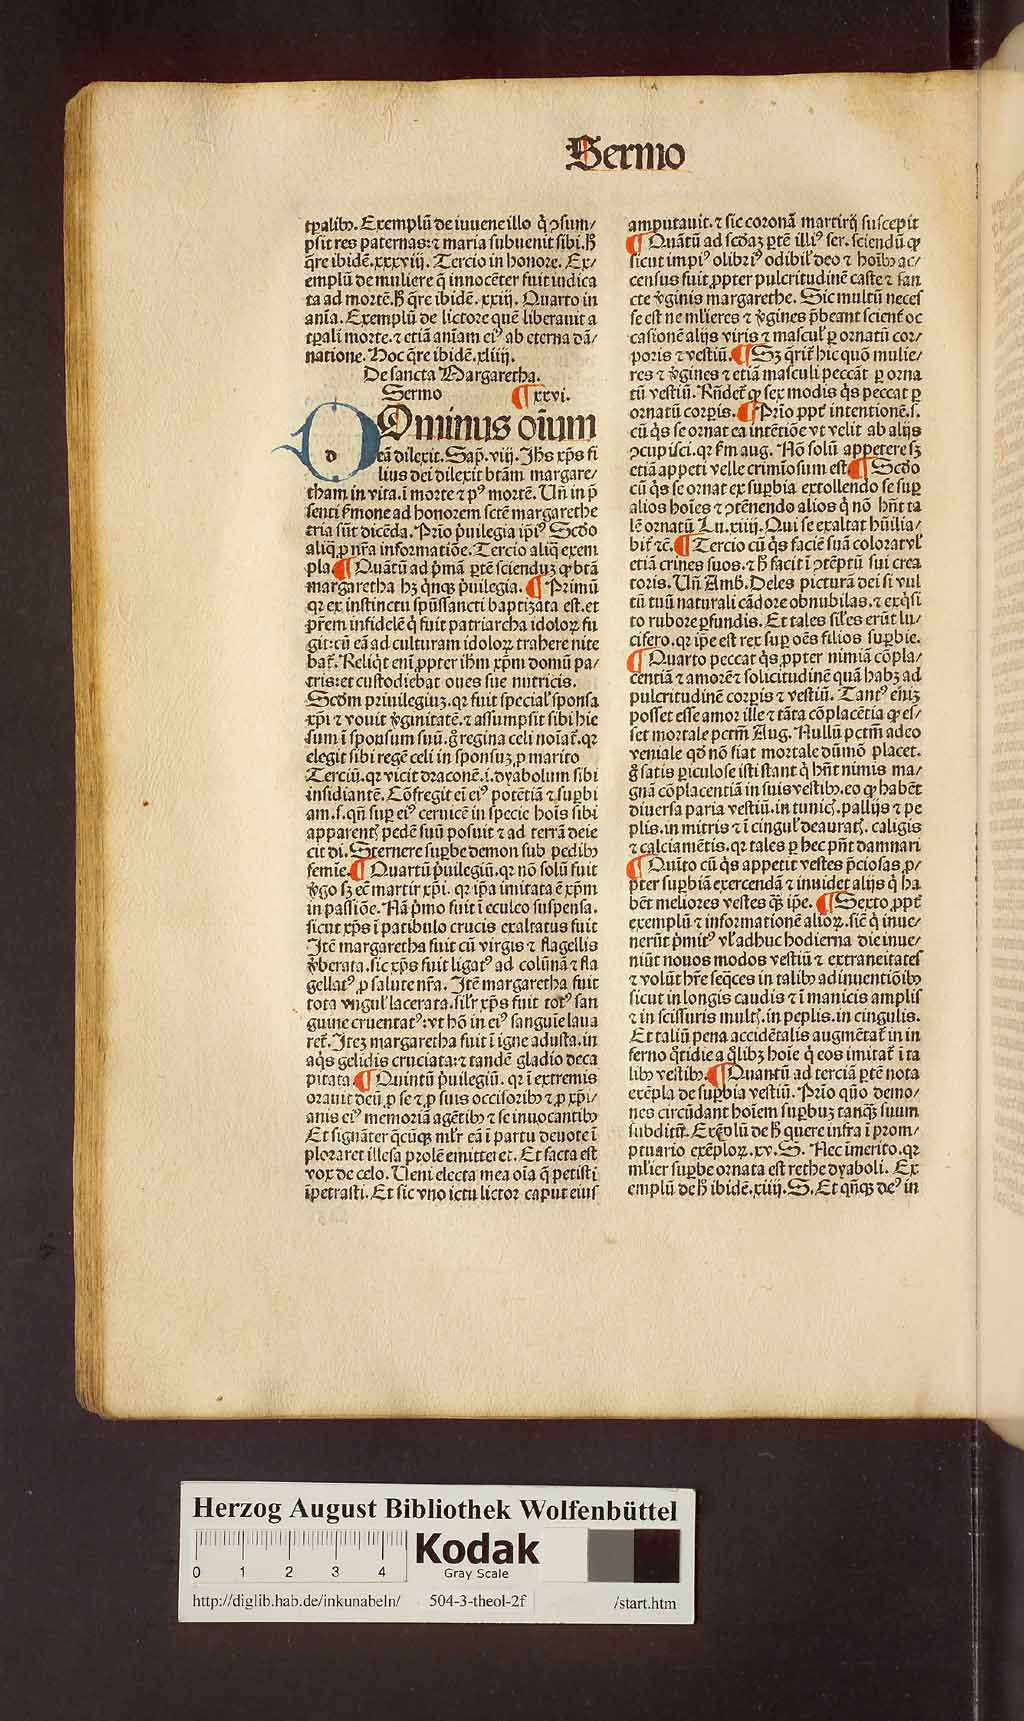 Sermo
tꝑalibꝰ. Exemplū de iuuene illo q̇ ↄsum/
psit res paternas: ⁊ maria subuenit sibi. h̄
q̄re ibidē. xxxviij. Tercio in honore. Ex/
emplū de muliere q̄ innocēter fuit iudica
ta ad mortē. h̄ q̄re ibidē. xxiij. Quarto in
aīa. Exemplū de lictore quē liberauit a
tꝑali morte. ⁊ etiā aīam eiꝰ ab eterna dā/
natione. Hoc q̄re ibidē. xliiij.
De sancta Margaretha.
Sermo ¶ xxvi.
DOminus oīum
d eā dilexit. Sap. viij. Jhs xp̄s fi
lius dei dilexit btām margare/
tham in vita. ī morte ⁊ pꝰ mortē. Un̄ in p̄
senti ẜmone ad honorem sctē margarethe
tria sūt dicēda. Prīo ṗuilegia ip̄iꝰ Scd̄o
aliq̄ ꝓ nr̄a informatiōe. Tercio aliq̄ exem
pla. ¶ Quātū ad p̄mā ꝑtē sciendū ꝙ btā
margaretha hꝫ q̇nqꝫ ṗuilegia. ¶ Primū
qꝛ ex instinctu spūssancti baptizata est. et
p̄rem infidelē q̇ fuit patriarcha idoloꝝ fu
git: cū eā ad culturam idoloꝝ trahere nite
bat᷑. Reliq̇t eni ꝓpter ihm̄ xp̄m domū pa/
tris: et custodiebat oues sue nutricis.
Scd̄m priuilegiuꝫ. qꝛ fuit special̕ sponsa
xp̄i ⁊ vouit v̄ginitatē. ⁊ assumpsit sibi hie
sum ī sponsum suū. g̊ regina celi noīat᷑. qꝛ
elegit sibi regē celi in sponsuꝫ ꝓ marito
Terciū. qꝛ vicit draconē. i. dyabolum sibi
insidiantē. Cōfregit eī eiꝰ potētiā ⁊ suꝑbi
am. s. qn̄ suꝑ eiꝰ ceruicē in specie hoīs sibi
apparentꝭ pedē suū posuit ⁊ ad terrā deie
cit dī. Sternere suꝑbe demon sub pedibꝰ
femīe. ¶ Quartū ṗuilegiū. qꝛ nō solū fuit
v̄go sꝫ eē martir xp̄i. qꝛ ip̄a imitata ē xp̄m
in passiōe. Nā ṗmo fuit ī eculeo suspensa.
sicut xp̄s ī patibulo crucis exaltatus fuit
Jtē margaretha fuit cū virgis ⁊ flagellis
v̄berata. sic xp̄s fuit ligatꝰ ad colūnā ⁊ fla
gellatꝰ ꝓ salute nr̄a. Jtē margaretha fuit
tota vngul̕ lacerata. sil̕r xp̄s fuit totꝰ san
guine cruentatꝰ: vt hō in eiꝰ sanguīe laua
ret᷑. Jteꝫ margaretha fuit ī igne adusta. in
aq̇s gelidis cruciata: ⁊ tandē gladio deca
pitata ¶ Quintū ṗuilegiū. qꝛ ī extremis
orauit deū ꝓ se ⁊ ꝓ suis occisoribꝰ ⁊ ꝓ xp̄i/
anis eiꝰ memoriā agētibꝰ ⁊ se inuocantibꝰ
Et signāter q̄cūqꝫ ml̕r eā ī partu deuote ī
ploraret illesa prolē emitteret. Et facta est
vox de celo. Ueni electa mea oīa q̄ petisti
īpetrasti. Et sic vno ictu lictor caput eius
amputauit. ⁊ sic coronā martirij suscepit
¶ Quātū ad scd̄aꝫ ꝑtē illiꝰ ser. sciendū ꝙ
sicut impiꝰ olibriꝰ odibil̕ deo ⁊ hoībꝰ ac/
census fuit ꝓpter pulcritudinē caste ⁊ san
cte v̄ginis margarethe. Sic multū neces
se est ne ml̕ieres ⁊ v̄gines p̄beant scienẜ oc
casionē alijs viris ⁊ mascul̕ ꝑ ornatū cor/
poris ⁊ vestiū. ¶ Sꝫ q̄rit᷑ hic quō mulie/
res ⁊ v̄gines ⁊ etiā masculi peccāt ꝑ orna
tū vestiū. Rn̄det᷑ ꝙ sex modis q̇s peccat ꝑ
ornatū corpis. ¶ Prīo ꝓpt᷑ intentionē. s.
cū q̇s se ornat ea intētiōe vt velit ab alijs
ↄcupisci. qꝛ ẜm aug. Nō solū appetere sꝫ
etiā appeti velle crimiosum est ¶ Scd̄o
cū q̇s se ornat ex suꝑbia extollendo se suꝑ
alios hoīes ⁊ ↄtēnendo alios q̇ nō hn̄t ta
lē ornatū Lu. xiiij. Qui se exaltat hūilia/
bit᷑ ⁊c̄. ¶ Tercio cū q̇s faciē suā colorat vl̕
etiā crines suos. ⁊ h̄ facit ī ↄtēptū sui crea
toris. Un̄ Amb. Deles picturā dei si vul
tū tuū naturali cādore obnubilas. ⁊ exq̇si
to rubore ꝑfundis. Et tales sil̕es erūt lu/
cifero. qꝛ ip̄e est rex suꝑ oēs filios suꝑbie.
¶ Quarto peccat q̇s ꝓpter nimiā cōpla/
centiā ⁊ amorē ⁊ solicitudinē quā habꝫ ad
pulcritudinē corpis ⁊ vestiū. Tantꝰ eniꝫ
posset esse amor ille ⁊ tāta cōplacētia ꝙ es/
set mortale pctm̄ Aug. Nullū pctm̄ adeo
veniale qd̄ nō fiat mortale dūmō placet.
g̊ satis ꝑiculose isti stant q̇ hn̄t nimis ma/
gnā cōplacentiā in suis vestibꝰ. eo ꝙ habēt
diuersa paria vestiū. in tunicꝭ. pallijs ⁊ pe
plis. in mitris ⁊ ī cingul̕ deauratꝭ. caligis
⁊ calciamētis. qꝛ tales ꝑ hec pn̄t damnari
¶ Quīto cū q̇s appetit vestes p̄ciosas ꝓ/
pter suꝑbiā exercendā ⁊ inuidet alijs q̇ ha
bēt meliores vestes qꝫ̄ ip̄e. ¶ Sexto ꝓpt᷑
exemplū ⁊ informationē alioꝝ. sic̄ q̇ inue/
nerūt ṗmitꝰ vl̕ adhuc hodierna die inue/
niūt nouos modos vestiū ⁊ extraneitates
⁊ volūt hr̄e seq̄ces in talibꝰ adinuentiōibꝰ
sicut in longis caudis ⁊ ī manicis amplis
⁊ in scissuris multꝭ. in peplis. in cingulis.
Et taliū pena accidētalis augmētat᷑ in in
ferno q̇tidie a q̇libꝫ hoīe q̇ eos imitat᷑ ī ta
libꝰ vestibꝰ. ¶ Quantū ad terciā ꝑtē nota
exēpla de suꝑbia vestiū. Prīo qūo demo/
nes circūdant hoīem suꝑbuꝫ tanqꝫ̄ suum
subditū. Exēplū de h̄ quere infra ī prom/
ptuario exēploꝝ. xv. S. Nec īmerito. qꝛ
ml̕ier suꝑbe ornata est rethe dyaboli. Ex
emplū de h̄ ibidē. xiiij. S. Et qn̄qꝫ deꝰ in
Herzog August Bibliothek Wolfenbüttel
0 1 2 3 4
Kodak
Gray Scale
http://diglib.hab.de/inkunabeln/ 504-3-theol-2f /start.htm